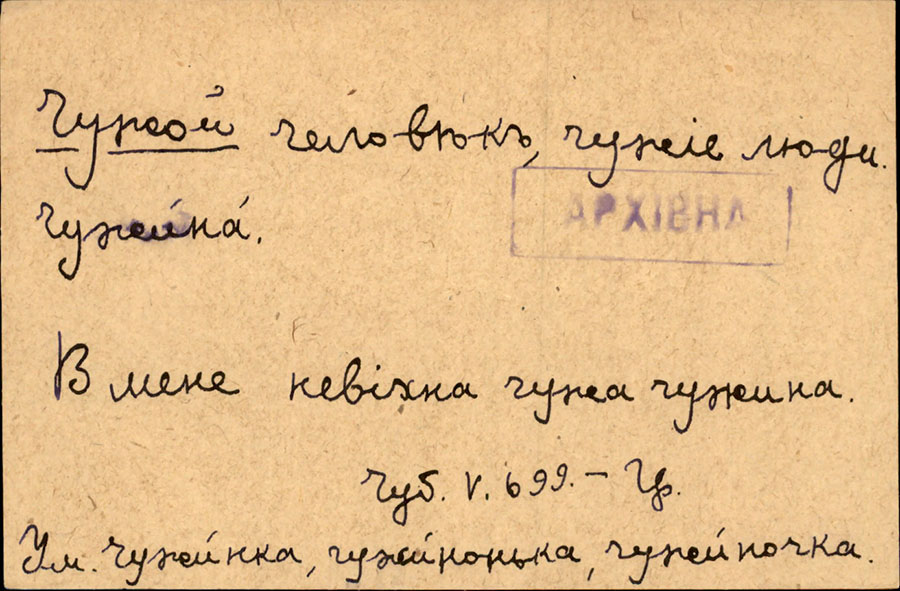 Чужой человѣкъ, чужіе люди.
АРХІВНА
чужина́.
В мене невіхна чужа чужина.
Чуб. V. 699. – Гр.
Ум. Чужи́нка, чужи́нонька, чужи́ночка.